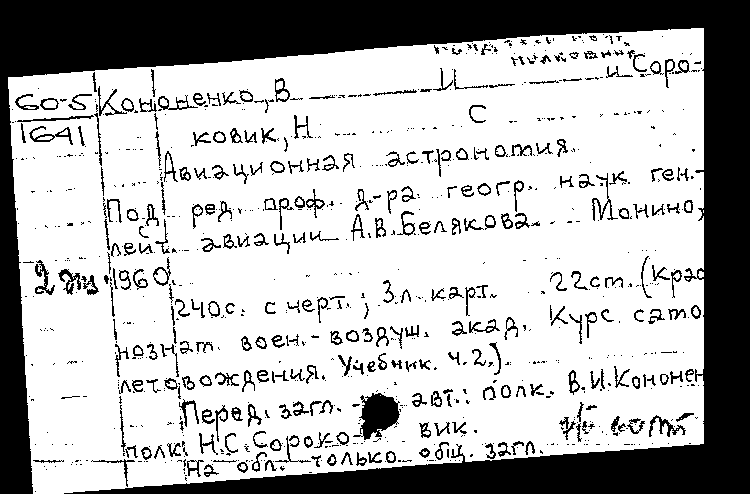 полковник
60-5 Кононенко, В И и Соро-
1641 ковик, Н С
Авиационная астрономия.
Под ред. проф. д-ра геогр. наук ген.-
лейт. авиации А.В.Белякова. Монино,
2 эк. 1960.
240с. с черт.; 3л. карт. 22cm. (Крас
нознам. воен.-воздуш. акад. Курс само
летовождения. Учебник. ч.2.).
Перед. загл. авт.: полк. В.И.Кононен
полк. Н.С.Сороко- вик.
На обл. только общ. загл.